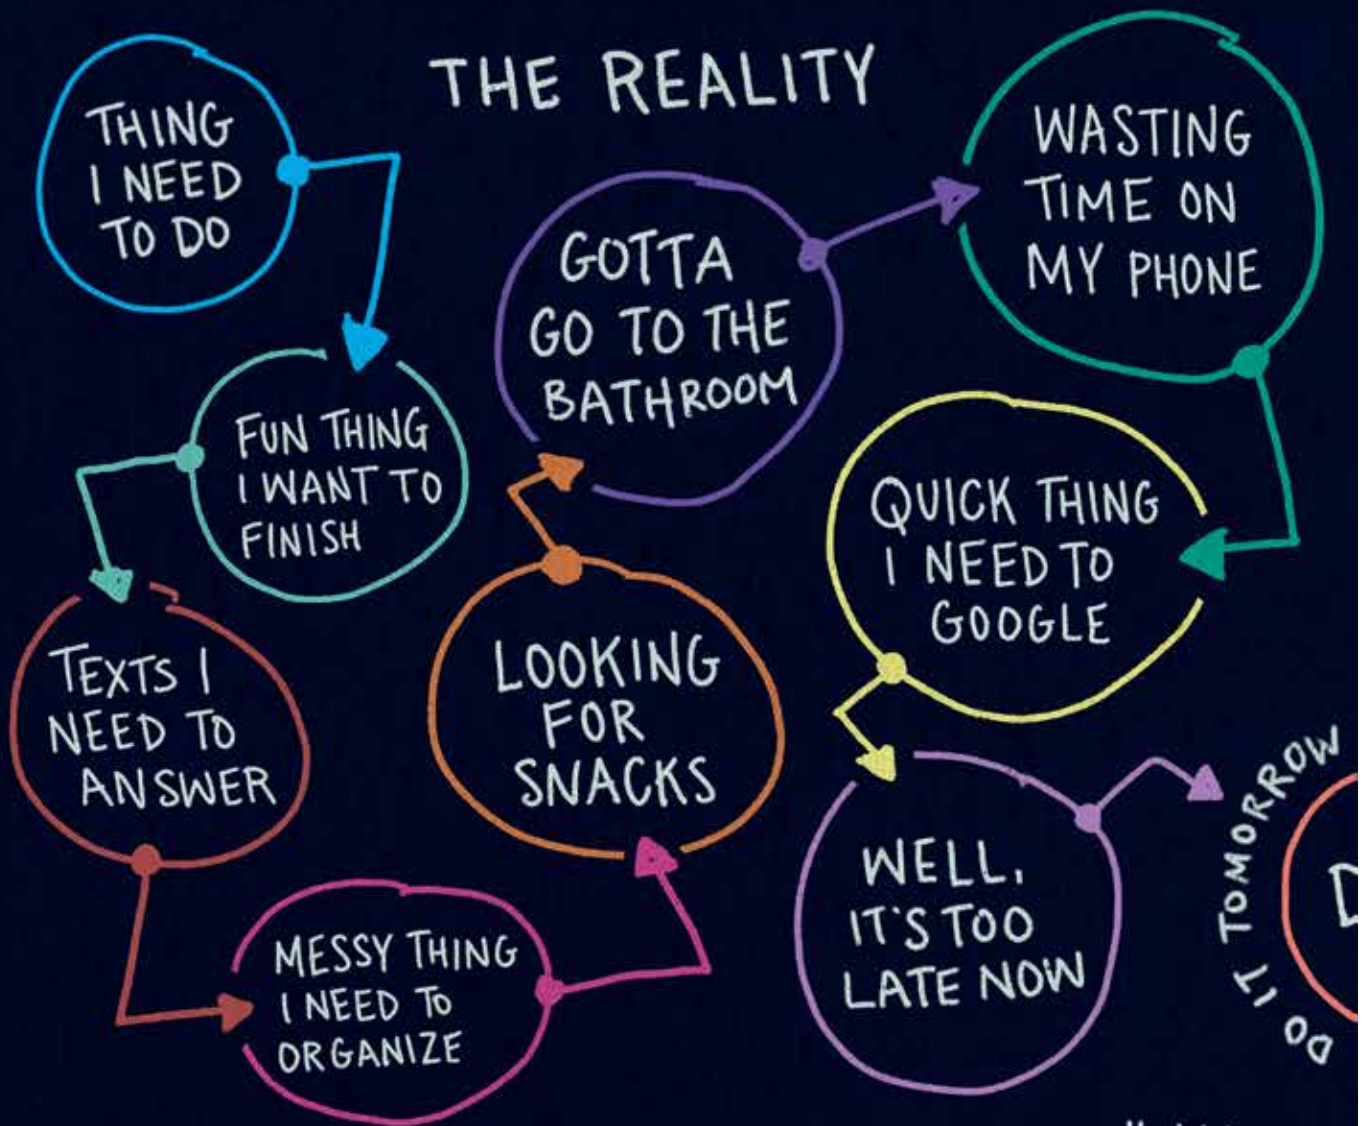 THE REALITY
THING
I NEED
TO DO
FUN THING
I WANT TO
FINISH
TEXTS I
NEED TO
ANSWER
MESSY THING
I NEED TO
ORGANIZE
LOOKING
FOR
SNACKS
GOTTA
GO TO THE
BATHROOM
WASTING
TIME ON
MY PHONE
QUICK THING
I NEED TO
GOOGLE
WELL,
IT'S TOO
LATE NOW
DO IT TOMORROW